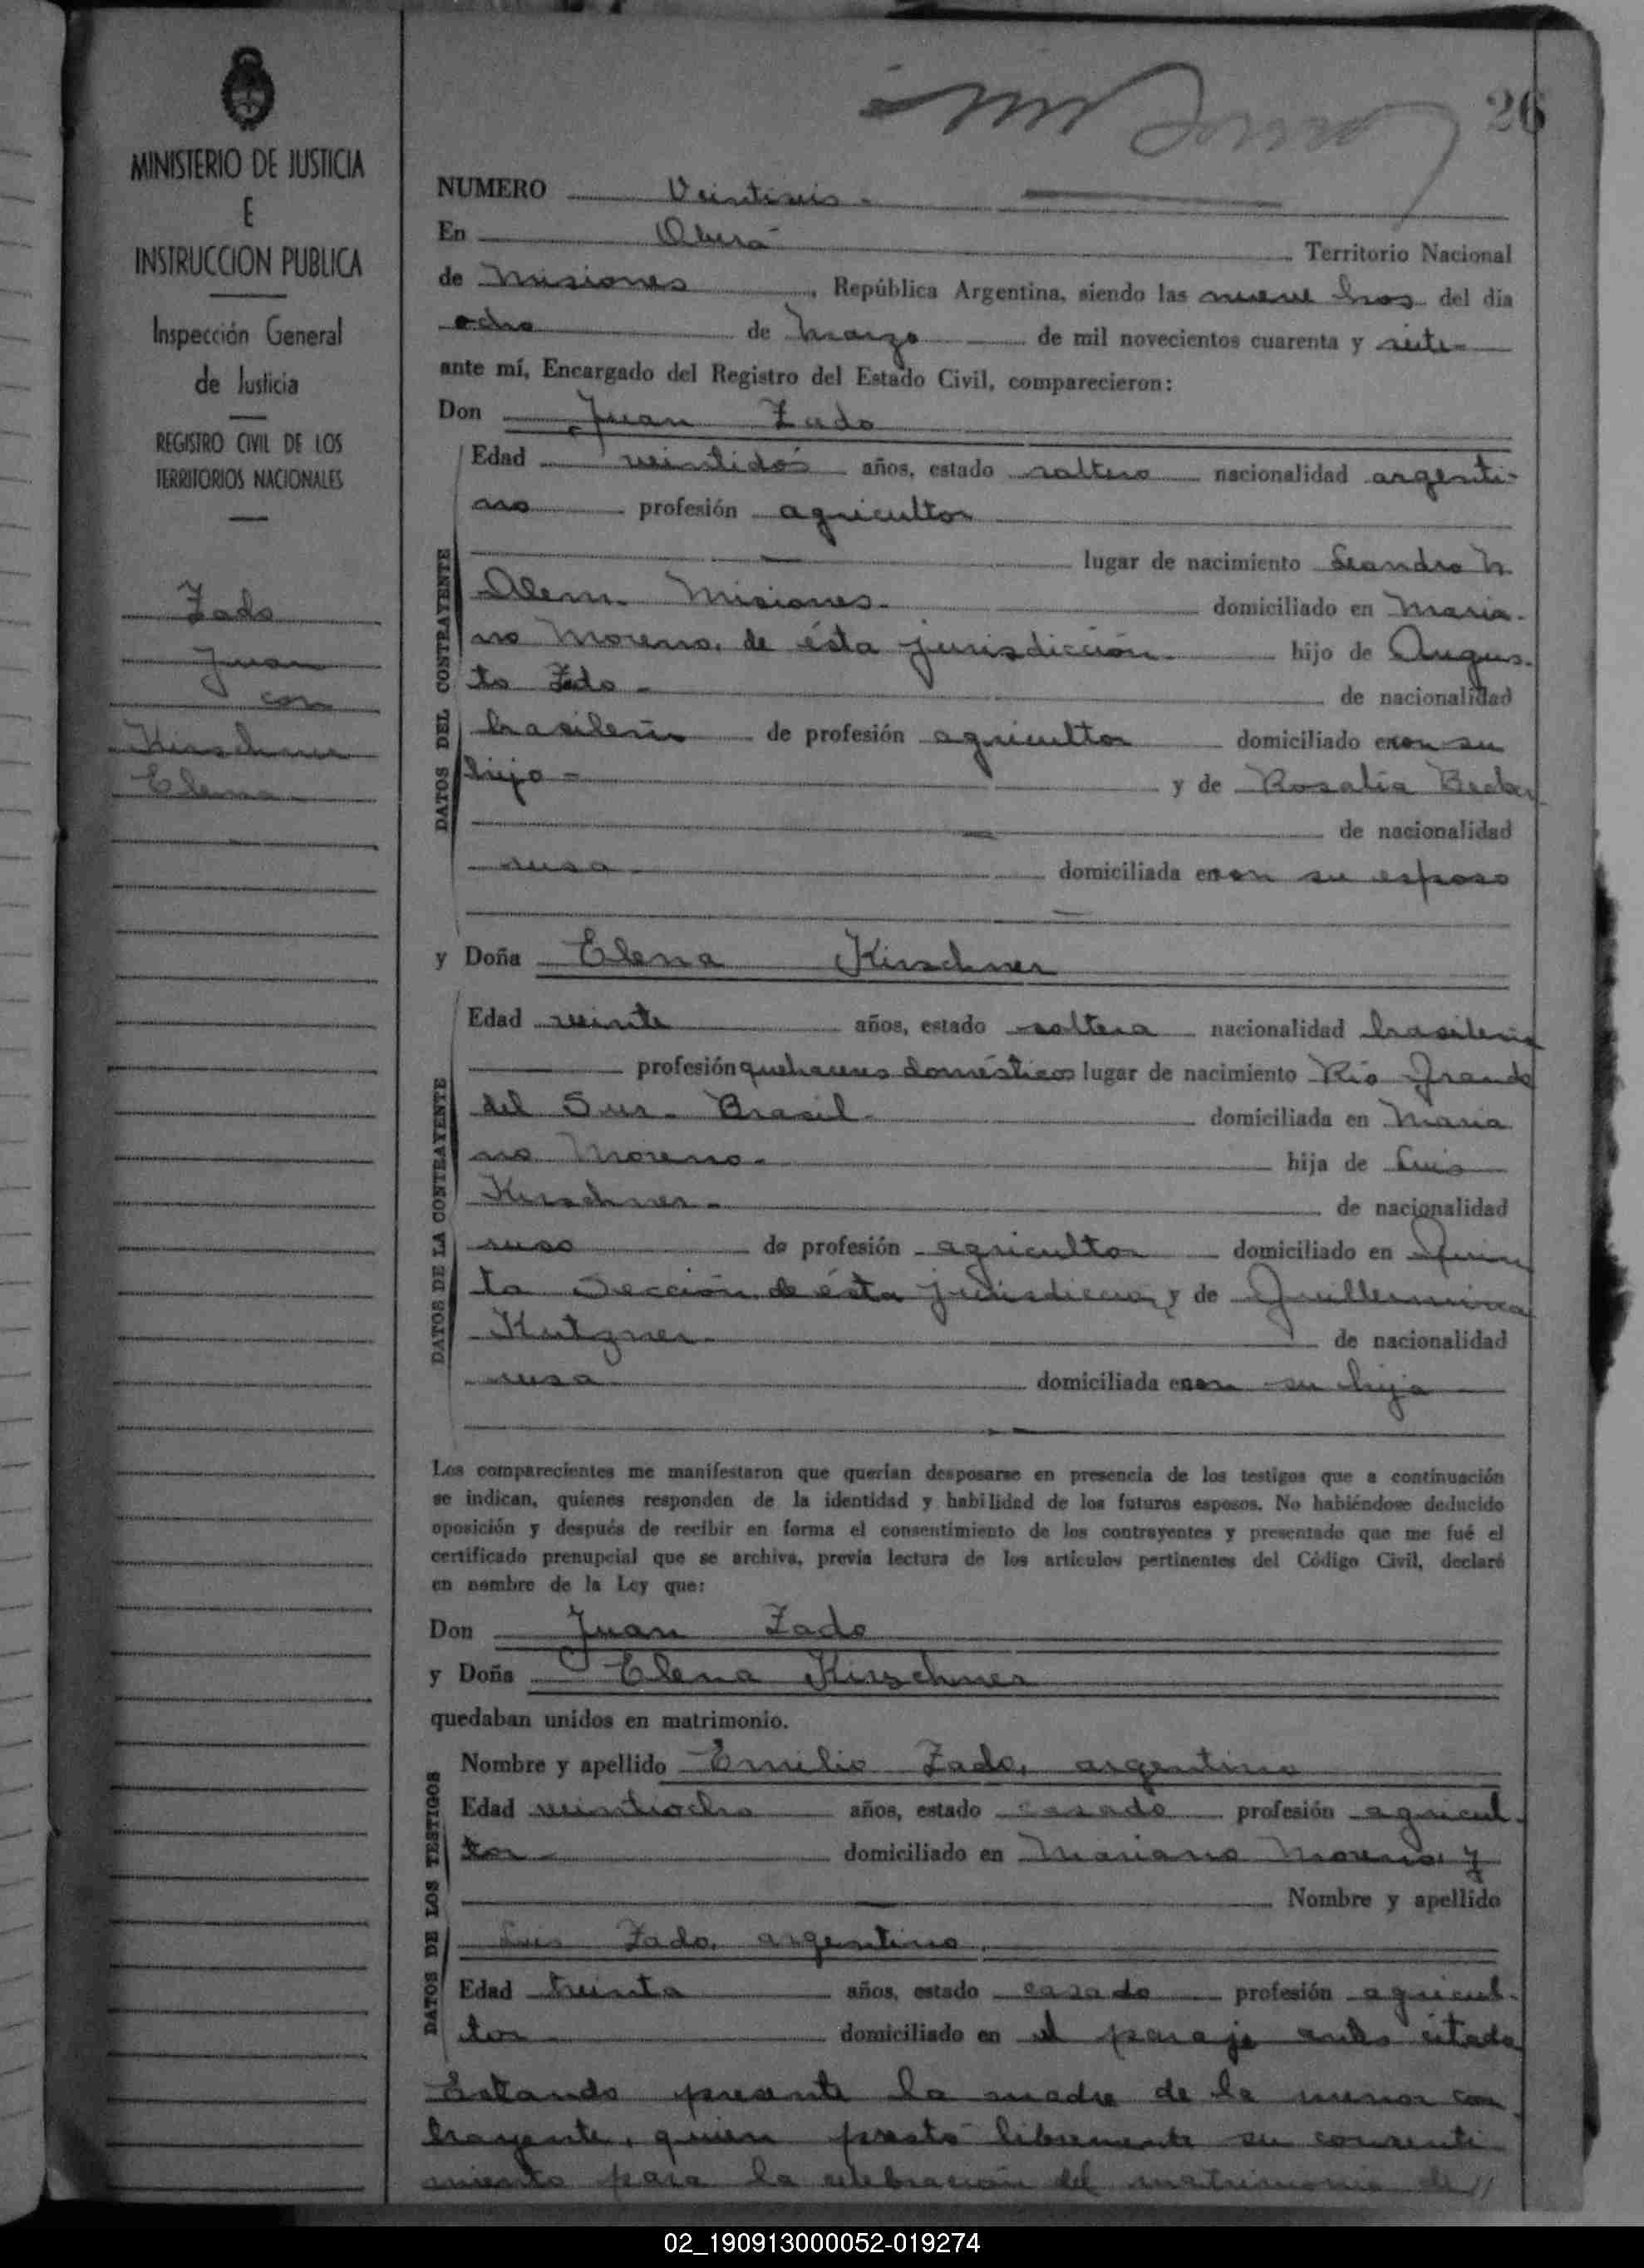 26
MINISTERIO DE JUSTICIA
E
INSTRUCCION PUBLICA
Inspección General
de Justicia
REGISTRO CIVIL DE LOS
TERRITORIOS NACIONALES
Zado
Juan
con
Kirschner
Elena
NUMERO Veintiseis
En Oberá Territorio Nacional
de Misiones, República Argentina, siendo las nueve hras del día
ocho de Marzo de mil novecientos cuarenta y siete
ante mí, Encargado del Registro del Estado Civil, comparecieron:
Don Juan Zado
DATOS DEL CONTRAYENTE
Edad veintidós años, estado soltero nacionalidad argenti-
no profesión agricultor
lugar de nacimiento Leandro N.
Alem. Misiones. domiciliado en Maria-
no Moreno, de ésta jurisdicción. hijo de Augus-
to Zado - de nacionalidad
brasileño de profesión agricultor domiciliado con su
hijo - y de Rosalía Becker
de nacionalidad
rusa domiciliada con su esposo
y Doña Elena Kirschner
DATOS DE LA CONTRAYENTE
Edad veinte años, estado soltera nacionalidad brasileña
profesión quehaceres domésticos lugar de nacimiento Río Grande
del Sur. Brasil. domiciliada en Maria
no Moreno. hija de Luis
Kirschner. de nacionalidad
ruso de profesión agricultor domiciliado en Quin
ta Sección de ésta jurisdicción y de Guillermina
Kutzner de nacionalidad
rusa domiciliada con su hija
Los comparecientes me manifestaron que querían desposarse en presencia de los testigos que a continuación
se indican, quienes responden de la identidad y habilidad de los futuros esposos. No habiéndose deducido
oposición y después de recibir en forma el consentimiento de los contrayentes y presentado que me fué el
certificado prenupcial que se archiva, previa lectura de los artículos pertinentes del Código Civil, declaré
en nombre de la Ley que:
Don Juan Zado
y Doña Elena Kirschner
quedaban unidos en matrimonio.
DATOS DE LOS TESTIGOS
Nombre y apellido Emilio Zado, argentino
Edad veintiocho años, estado casado profesión agricul-
tor - domiciliado en Mariano Moreno y
Nombre y apellido
Luis Zado, argentino
Edad treinta años, estado casado profesión agricul-
tor domiciliado en el paraje antes citado
Estando presente la madre de la menor con
trayente, quien prestó libremente su consenti
miento para la celebración del matrimonio de //
02_190913000052-019274